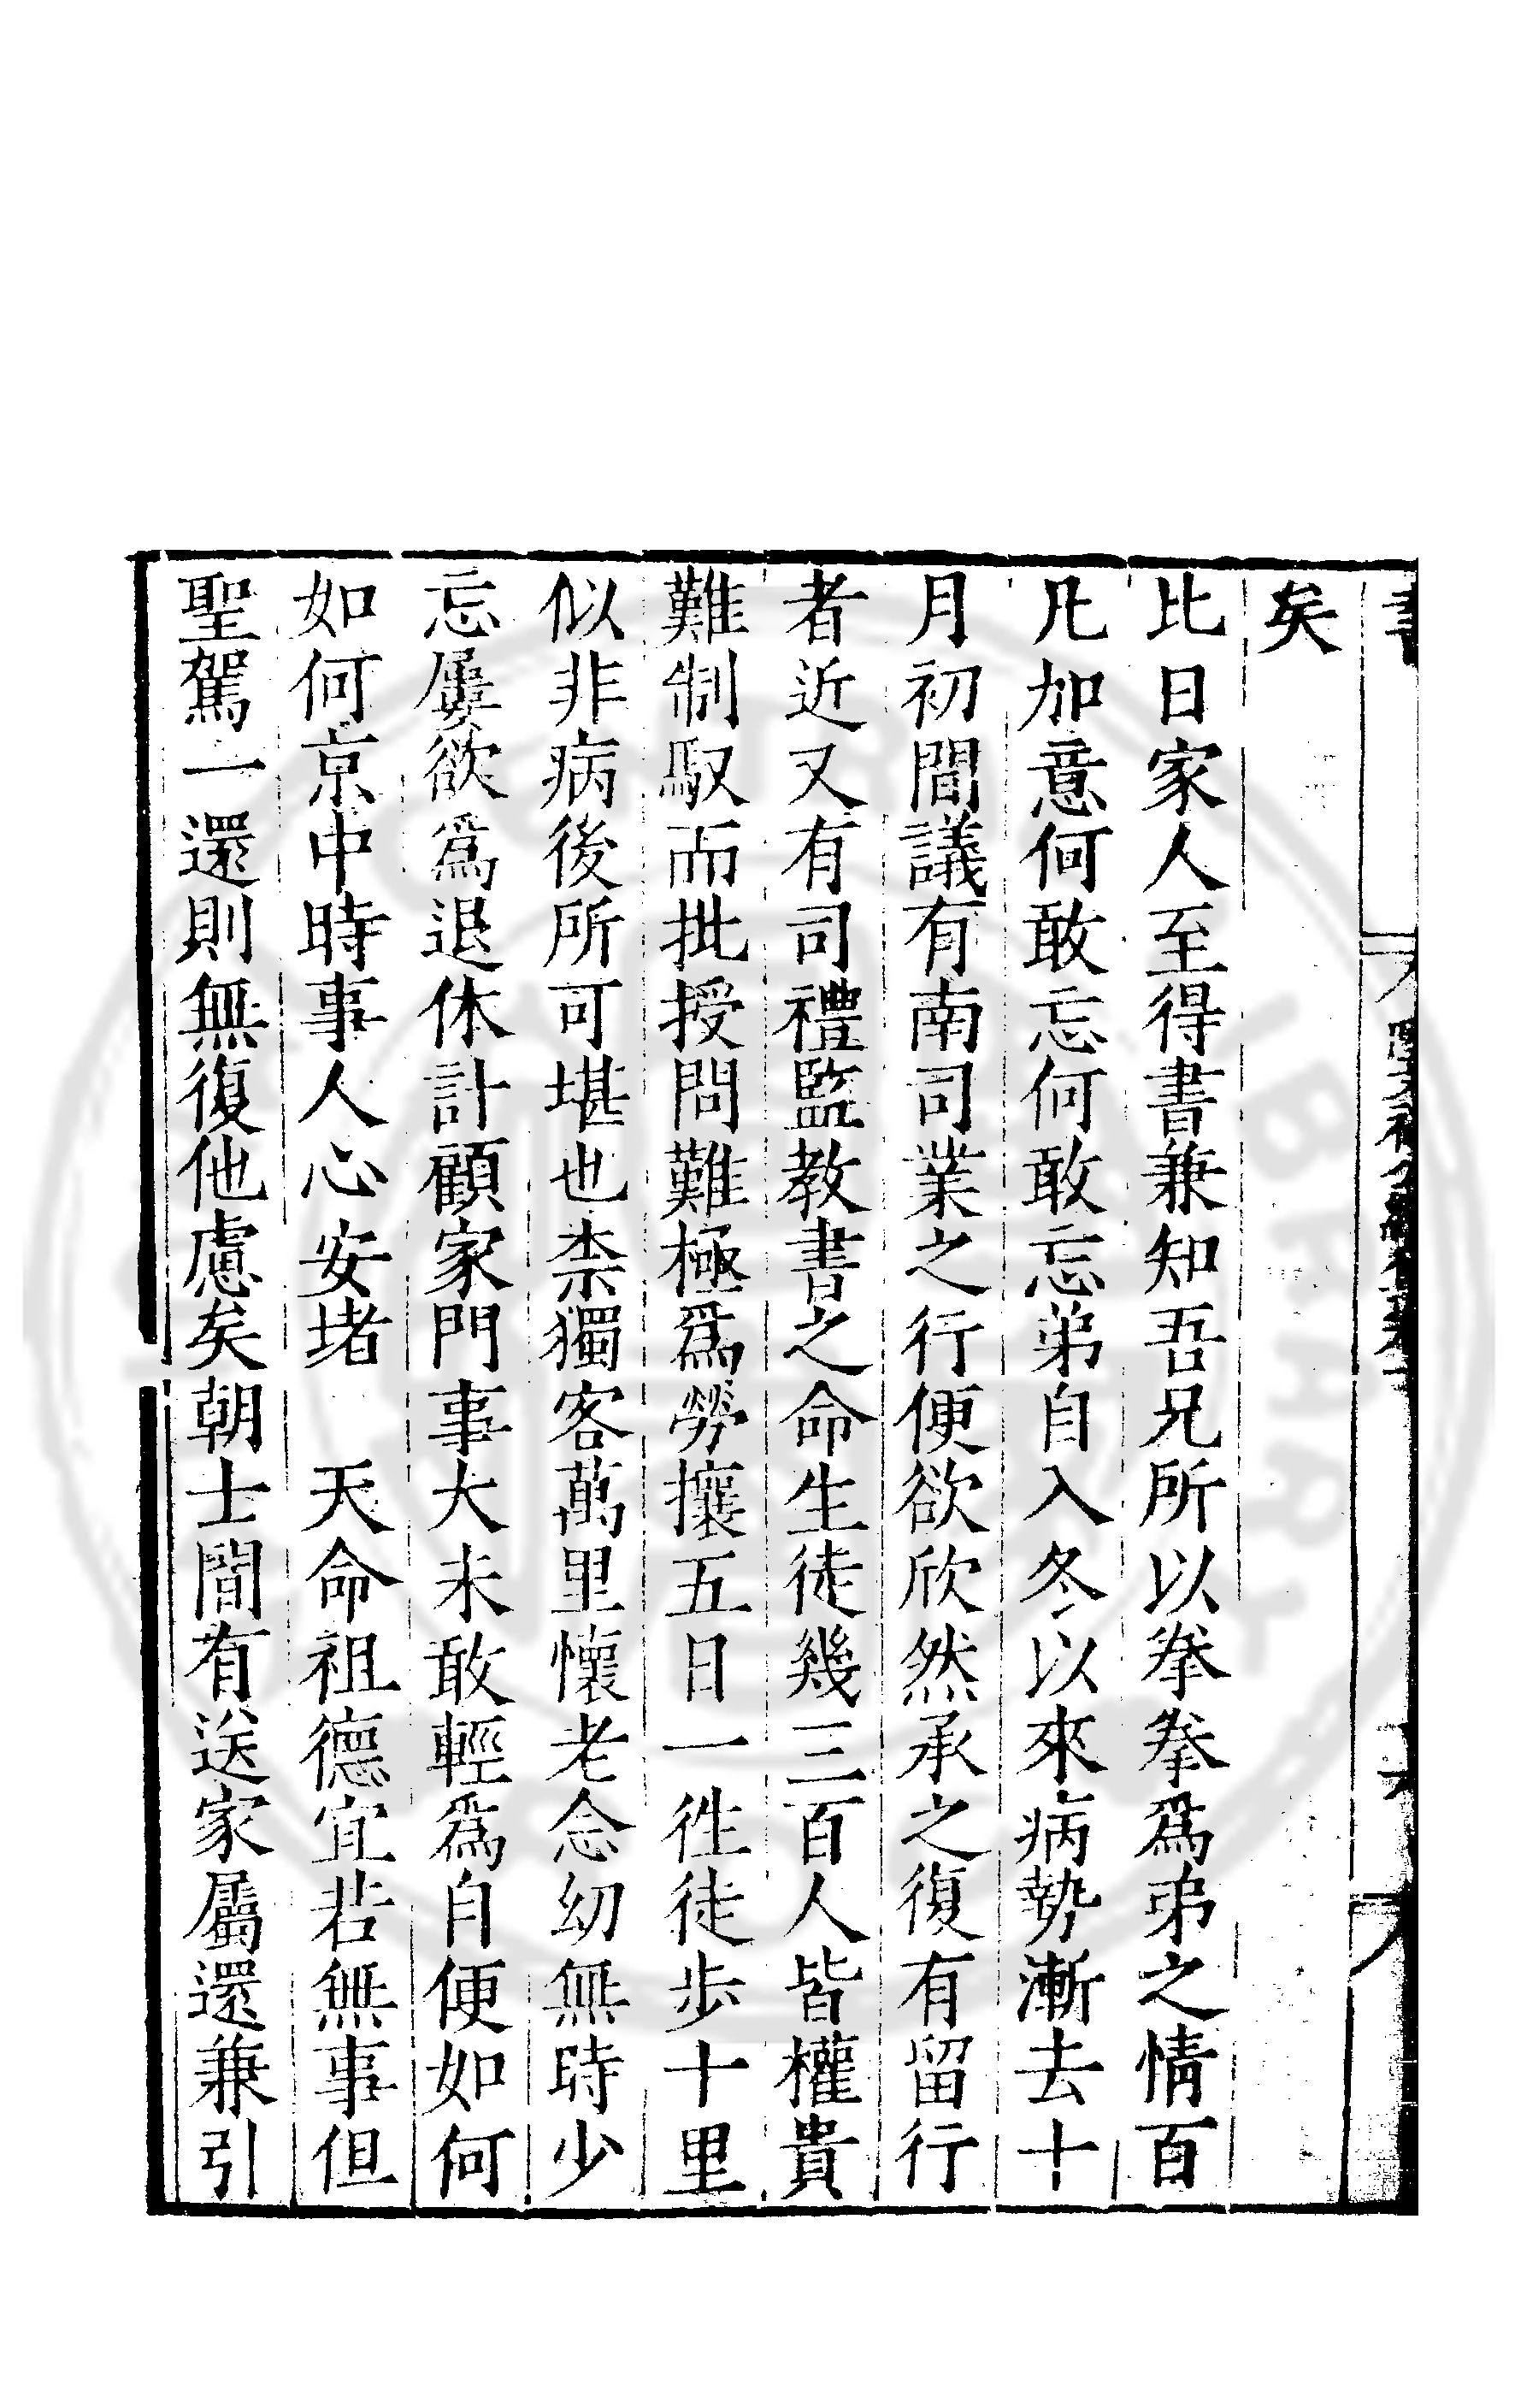 矣
比日家人至得書兼知吾兄所以拳拳爲弟之情百
凡加意何敢忘何敢忘弟自入冬以來病勢漸去十
月初間議有南司業之行便欲欣然承之復有留行
者近又有司禮監教書之命生徒幾三百人皆權貴
難制馭而批授問難極爲勞攘五日一徃徒步十里
似非病後所可堪也柰獨客萬里懷老念幼無時少
忘屢欲爲退休計顧家門事大未敢輕爲自便如何
如何京中時事人心安堵　天命祖德宜若無事但
聖駕一還則無復他慮矣朝士間有送家屬還兼引